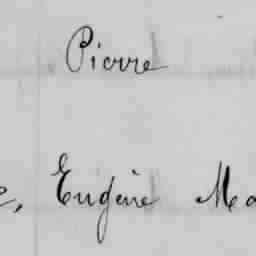 Pierre
e, Eugène Ma